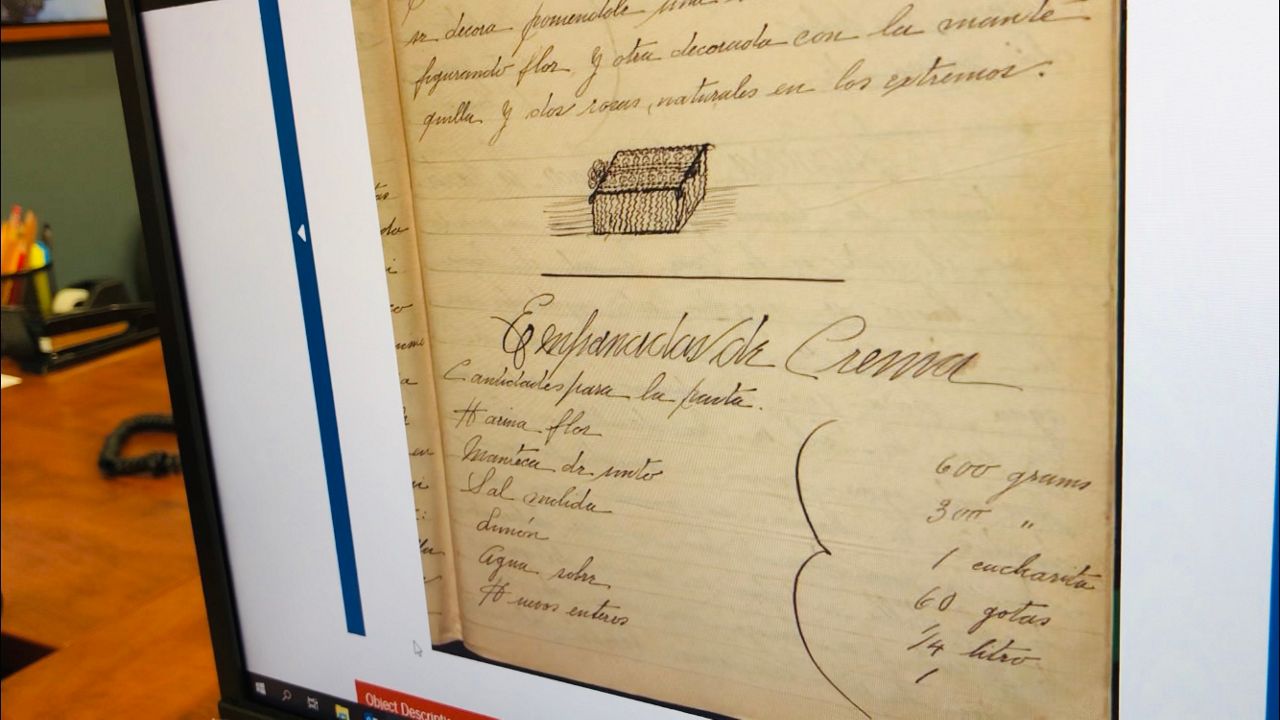 se decora poniendole una
figurando flor y otra decorada con la mante
quilla y dos rosas naturales en los extremos.
Empanadas de Crema
Cantidades para la pasta.
Harina flor
600 grams
Manteca de unto
300 "
Sal molida
1 cucharita
Limón
60 gotas
Agua sobre
1/4 litro
Huevos enteros
1
Object Descripti